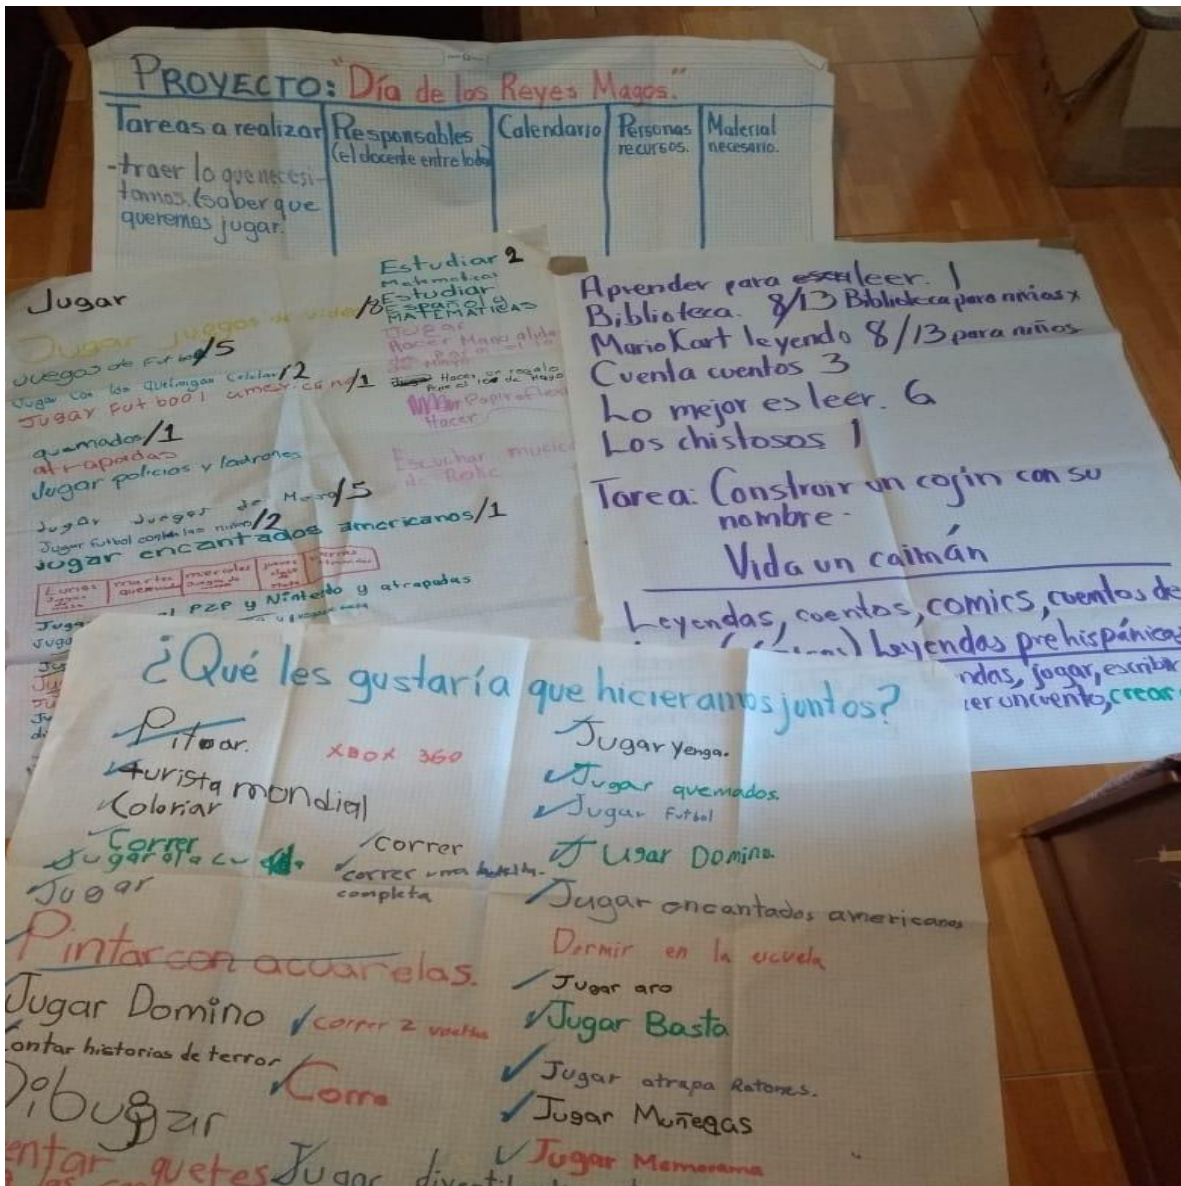 PROYECTO: "Día de los Reyes Magos."
Tareas a realizar
-traer lo que necesi-
tamos. (saber que
queremos jugar.
Responsables
(el docente entre todos)
Calendario
Personas
recursos.
Material
necesario.
Jugar
Jugar juegos de video/8
Juegos de Futbol/5
Jugar Futbool americano/1
quemados/1
atrapadas
Jugar policias y ladrones
Jugar Juegos de Mesa/5
Jugar futbol con las niñas/2
Jugar encantados americanos/1
Lunes
martes
quemados
miercoles
PZP y Nintendo y atrapadas
Estudiar 2
Matematicas
Estudiar
Español y
MATEMÁTICAS
Jugar
Hacer
Escuchar music
de Rock
Aprender para leer. 1
Biblioteca. 8/13 Biblioteca para niñas x
Mario Kart leyendo 8/13 para niños
Cuenta cuentos 3
Lo mejor es leer. 6
Los chistosos 1
Tarea: Construir un cojin con su
nombre.
Vida un caimán
Leyendas, cuentos, comics, cuentos de
Leyendas prehispánicas
ndas, jugar, escribir
er un cuento, crear
¿Qué les gustaría que hicieramos juntos?
Pitar.
turista mondial
Coloriar
Correr
Jugar
XBOX 360
correr
correr una
completa
Pintar con acuarelas.
Jugar Domino
correr 2 vueltas
ontar historias de terror
Dibugar
Come
Jugar
Jugar yenga.
Jugar quemados.
Jugar Futbol
JUgar Domino.
Jugar encantados americanos
Dormir en la escuela
Jugar aro
Jugar Basta
Jugar atrapa Ratones.
Jugar Muñegas
Jugar Memorama